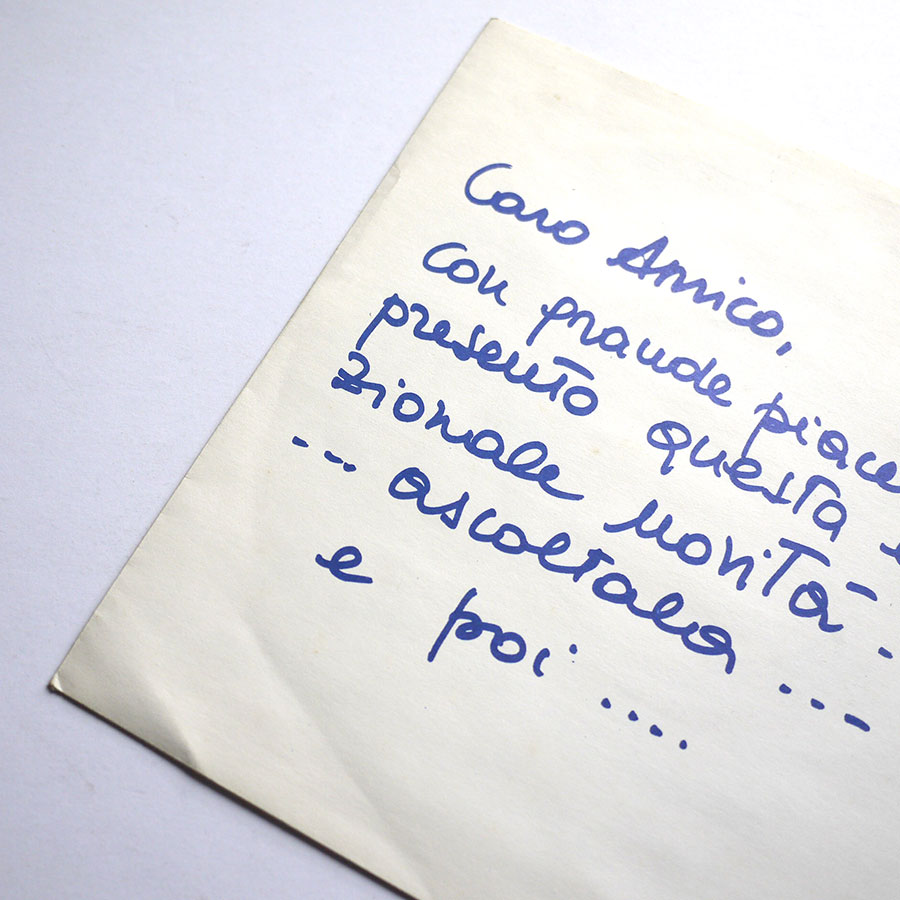 Caro Amico,
con grande piace
presento questa e
zionale novità - .
... ascoltala ...
e poi ....